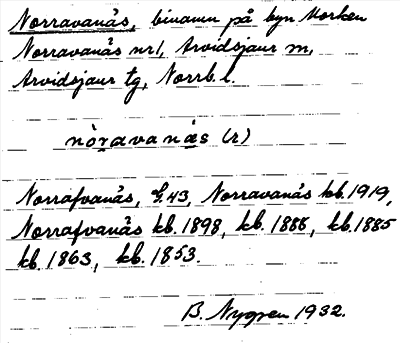 Norravanås, binamn på byn Morken
Norravanås nr1, Arvidsjaur sn,
Arvidsjaur tg, Norrb. l.
nòravanås (r)
Norrafvanås, G.43, Norravanås kb. 1919,
Norrafvanås kb. 1898, kb. 1888, kb. 1885
kb. 1863, kb. 1853.
B. Nygren 1932.